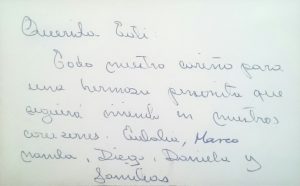 Querida Euti:
Todo nuestro cariño para
una hermosa personita que
seguirá viviendo en nuestros
corazones. Eudalia, Marco
nanda, Diego, Daniela y
familias